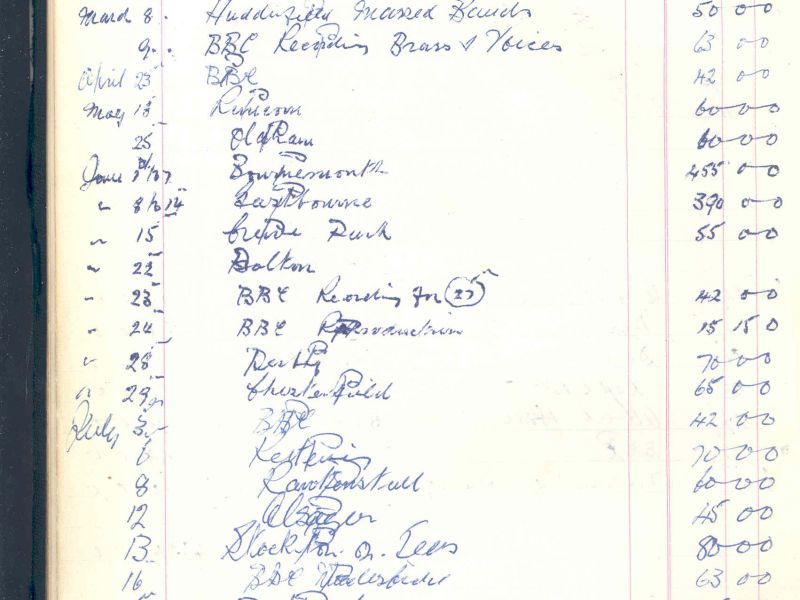 March 8. Huddersfield Massed Bands 50 00
9. BBC Recording Brass & Voices 63 00
April 23 BBC 42 00
May 18 Runcorn 60 00
25 Oldham 60 00
June 1st to 7 Bournemouth 455 00
" 8 to 14 Eastbourne 390 00
" 15 Park 55 00
" 22 Bolton
" 23 BBC Recording for 27 42 00
" 24 BBC Reproduction 15 15 0
" 28 Derby 70 00
" 29 Chesterfield 65 00
July 3 BBC 42 00
6 Kettering 70 00
8 Rawtenstall 60 00
12 Alsager 45 00
13. Stockton. on. Tees 80 00
16 BBC 63 00